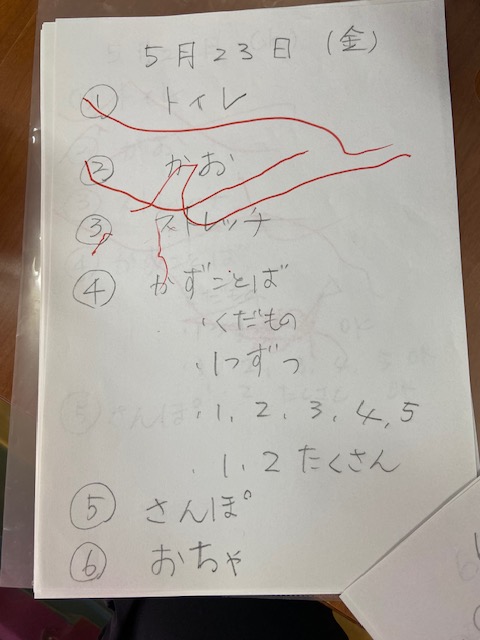 5月23日 (金)
① トイレ
② かお
③ ストレッチ
④ かずことば
・くだもの
・1つずつ
・1、2、3、4、5
・1、2たくさん
⑤ さんぽ
⑥ おちゃ